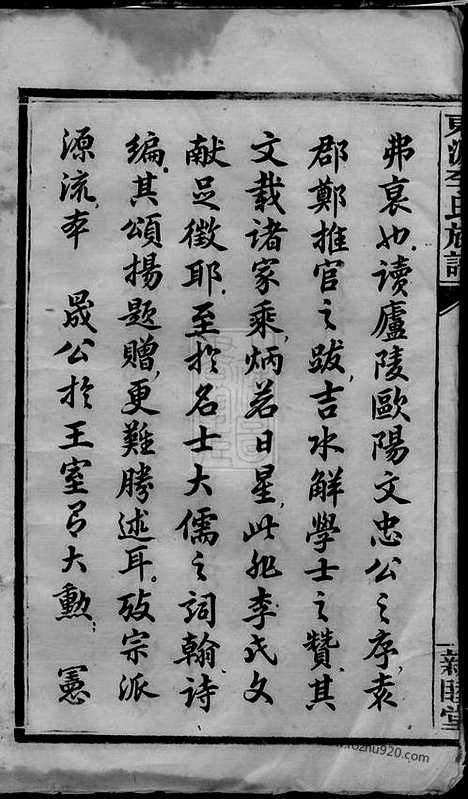 東源李氏族譜
弗衰也讀廬陵歐陽文忠公之序袁
郡鄭推官之跋吉水解學士之贊其
文載諸家乘炳若日星此非李氏文
献足徵耶至於名士大儒之詞翰詩
編其頌揚題贈更難勝述耳攷宗派
源流本 晟公於王室有大勳 憲